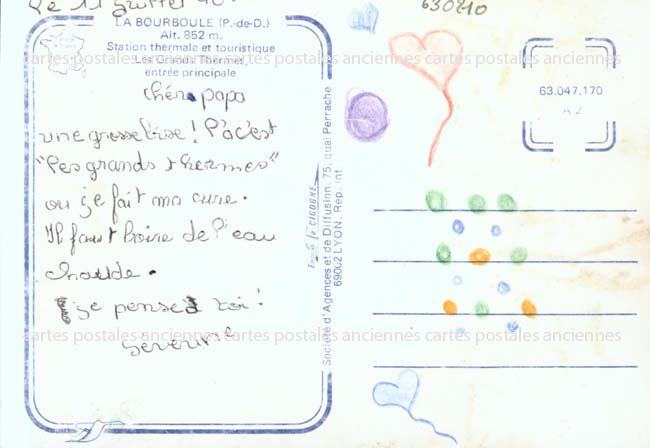 Le 11 Juillet 90
630210
LA BOURBOULE (P.-de-D.)
Alt. 852 m.
Station thermale et touristique
Les Grands Thermes,
entrée principale
cartes postales anciennes cartes postales anciennes cartes postales anciennes cartes postales anciennes
chér papa
une grosse bise! l'à c'est
"les grands thermes"
ou je fait ma cure.
Il faut boire de l'eau
chaude.
je pense à toi!
Severine
Société d'Agences et de Diffusion, 75, quai Perrache
69002 LYON. Rep. int.
63.047.170
A 2
cartes postales anciennes cartes postales anciennes cartes postales anciennes cartes postales anciennes